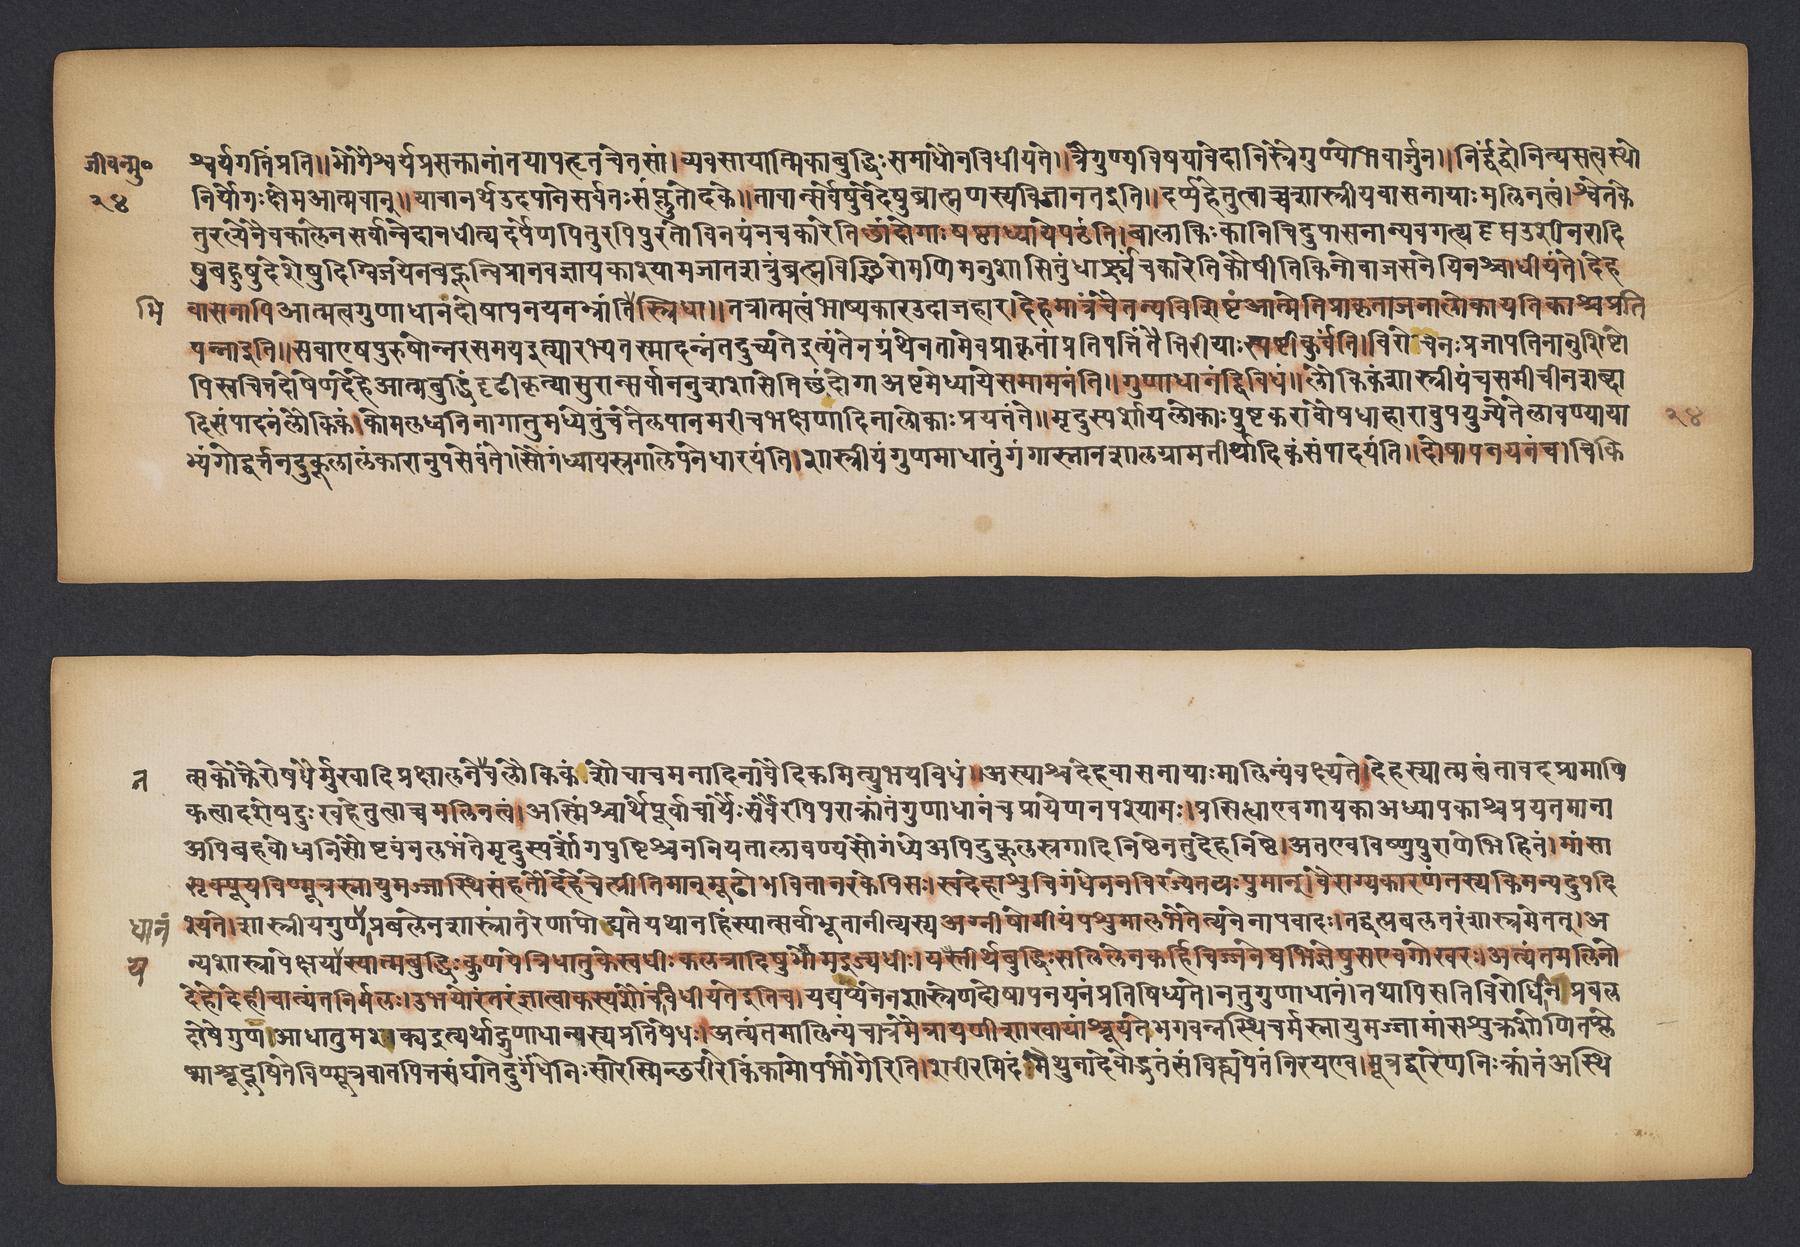 जीवन्मु॰
२४
श्वर्यगतिंप्रति॥भोगैश्वर्यप्रसक्तानांतयापहृतचेतसां।व्यवसायात्मिकाबुद्धिःसमाधौनविधीयते॥त्रैगुण्यविषयावेदानिस्त्रैगुण्योभवार्जुन॥निर्द्वंद्वोनित्यसत्वस्थो
निर्योगःक्षेमआत्मवान्॥यावानर्थउदपानेसर्वतःसंप्लुतोदके॥तावान्सर्वेषुवेदेषुब्राह्मणस्यविजानतइति॥दर्प्पहेतुत्वाच्चशास्त्रीयवासनायाःमलिनत्वं।श्वेतके
तुरल्पेनैवकालेनसर्वान्वेदानधीत्यदर्पेणपितुरपिपुरतोविनयंनचकारेतिछांदोगाःषष्ठाध्यायेपठंति।बालाकिःकानिचिदुपासनान्यवगत्यदृप्तउशीनरादि
षुबहुषुदेशेषुदिग्विजयेनबहून्विप्रानवज्ञायकाश्यामजातशत्रुंब्रह्मविच्छिरोमणिमनुशासितुंधार्ष्ट्यंचकारेतिकौषीतिकिनोवाजसनेयिनश्चाधीयंते।देह
भि
वासनापिआत्मत्वगुणाधानदोषापनयनभ्रांतिस्त्रिधा॥तत्रात्मत्वंभाष्यकारउदाजहार।देहमात्रंचैतन्यविशिष्टंआत्मेतिप्राकृताजनालोकायतिकाश्चप्रति
पन्नाइति॥सवाएषपुरुषोन्नरसमयइत्यारभ्यतस्मादन्नंतदुच्यतेइत्यंतेनग्रंथेनतामेवप्राकृतांप्रतिपत्तिंतैत्तिरीयाःस्पष्टीकुर्वंति।विरोचनःप्रजापतिनानुशिष्टो
पिस्वचित्तदोषेणदेहेआत्मबुद्धिंदृढीकृत्यासुरान्सर्वाननुशशासेतिछंदोगाअष्टमेध्यायेसमामनंति॥गुणाधानंद्विविधं॥लौकिकंशास्त्रीयंचसमीचीनशब्दा
दिसंपादनंलौकिकं।कोमलध्वनिनागातुमध्येतुंचतैलपानमरीचभक्षणादिनालोकाःप्रयतंते॥मृदुस्पर्शायलोकाःपुष्टिकरावौषधाहारावुपयुज्यंतेलावण्याया
२४
भ्यंगोद्वर्त्तनदुकूलालंकारानुपसेवंते॥सौगंध्यायस्रगालेपनेधारयंति।शास्त्रीयंगुणमाधातुंगंगास्नानशालयामतीर्थादिकंसंपादयंति।दोषापनयनंच।चिकि
न
त्सकोक्तैरौषधैर्मुखादिप्रक्षालनेचलौकिकंशौचाचमनादिनावैदिकमित्युभयविधं॥अस्याश्चदेहवासनायाःमालिन्यंवक्ष्यते।देहस्यात्मत्वंतावदप्रामाणि
कत्वादशेषदुःखहेतुत्वाच्चमलिनत्वं।अस्मिंश्चार्थेपूर्वाचार्यैःसर्वैरपिपराक्रांतंगुणाधानंचप्रायेणनपश्यामः।प्रसिद्धाएवगायकाअध्यापकाश्चप्रयतमाना
अपिबहवोध्वनिसौष्टवंनलभंतेमृदुस्पर्शोंगपुष्टिश्चननियतालावण्यसौगंध्येअपिदुकूलस्रगादिनिष्ठेनतुदेहनिष्ठे।अतएवविष्णुपुराणेभिहितं।मांसा
सृक्पूयविण्मूत्रस्नायुमज्जास्थिसंहतौदेहेचेत्प्रीतिमान्मूढोभवितानरकेपिसः।स्वदेहाशुचिगंधेननविरज्येतयःपुमान्।वैराग्यकारणंतस्यकिमन्यदुपदि
धानं
श्यते।शास्त्रीयगुणप्रबलेनशास्त्रांतरेणापोद्यतेयथानहिंस्यात्सर्वाभूतानीत्यस्यअग्नीषोमीयंपशुमालभेतेत्यनेनापवादः।तद्वत्प्रबलतरंशास्त्रमेतत्।अ
य
न्यशास्त्रापेक्षयास्यात्मबुद्धिःकुणपेत्रिधातुकेस्वधीःकलत्रादिषुभौमइज्यधीः।यस्तीर्थबुद्धिःसलिलेनकर्हिचिज्जनेष्वभिज्ञेषुसएवगोखरः।अत्यंतमलिनो
देहोदेहीचात्यंतनिर्मलः।उभयोरंतरंज्ञात्वाकस्यशौचंविधीयतेइतिच।यद्यप्यनेनशास्त्रेणदोषापनयनंप्रतिषिध्यते।नतुगुणाधानं।तथापिसतिविरोधिनिप्रबल
दोषेगुणआधातुमशक्यइत्यर्थाद्गुणाधानस्यप्रतिषेधः।अत्यंतमालिन्यंचात्रमैत्रायणीशाखायांश्रूयतेभगवन्नस्थिचर्मस्नायुमज्जामांसशुक्रशोणितश्ले
ष्माश्रूदूषितेविण्मूत्रवातपित्तसंघातेदुर्गंधेनिःसारेस्मिन्छरीरेकिंकामोपभोगैरिति।शरीरमिदंमैथुनादेवोद्भूतंसंविद्व्यपेतंनिरयएव।मूत्रद्वारेणनिःक्रांतंअस्थि